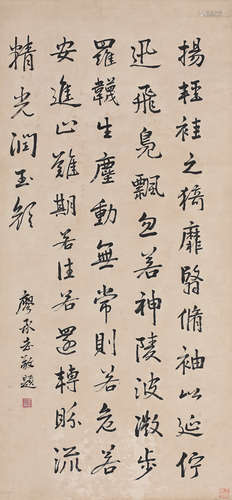 揚輕袿之猗靡翳脩袖以延佇
迅飛鳧飄忽若神陵波微步
羅韈生塵動無常則若危若
安進止難期若往若還轉眄流
精光潤玉顏
廖承志敬題